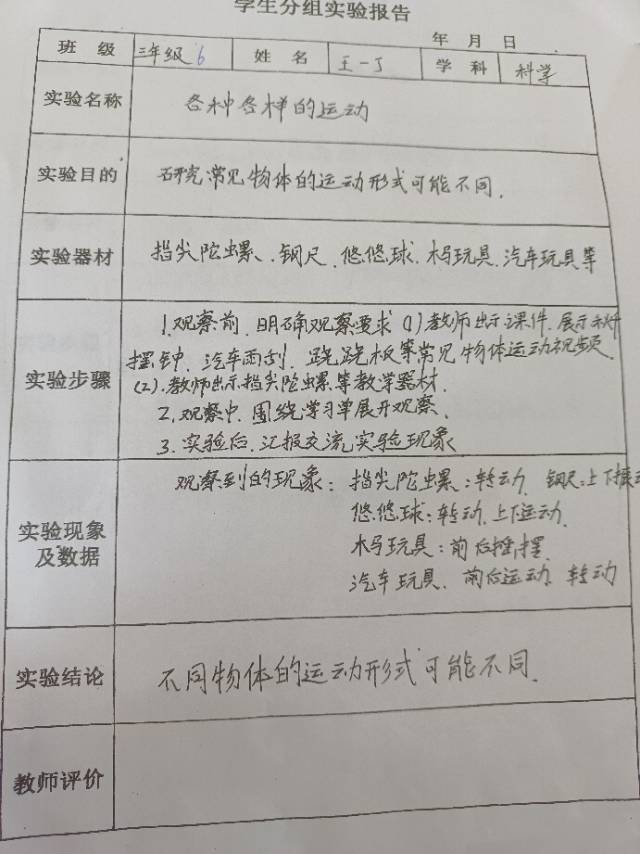 学生分组实验报告
年 月 日
班 级 三年级 6 姓 名 王一丁 学 科 科学
实验名称 各种各样的运动
实验目的 研究常见物体的运动形式可能不同.
实验器材 指尖陀螺、钢尺、悠悠球、木马玩具、汽车玩具等
实验步骤
1.观察前,明确观察要求(1)教师出示课件,展示
摆钟、汽车雨刮、跷跷板等常见物体运动视频.
(2).教师出示指尖陀螺等教学器材.
2.观察中,围绕学习单展开观察.
3.实验后,汇报交流实验现象
实验现象
及数据
观察到的现象:指尖陀螺:转动 钢尺:上下摆动
悠悠球:转动,上下运动.
木马玩具:前后摇摆.
汽车玩具、前后运动、转动
实验结论 不同物体的运动形式可能不同.
教师评价